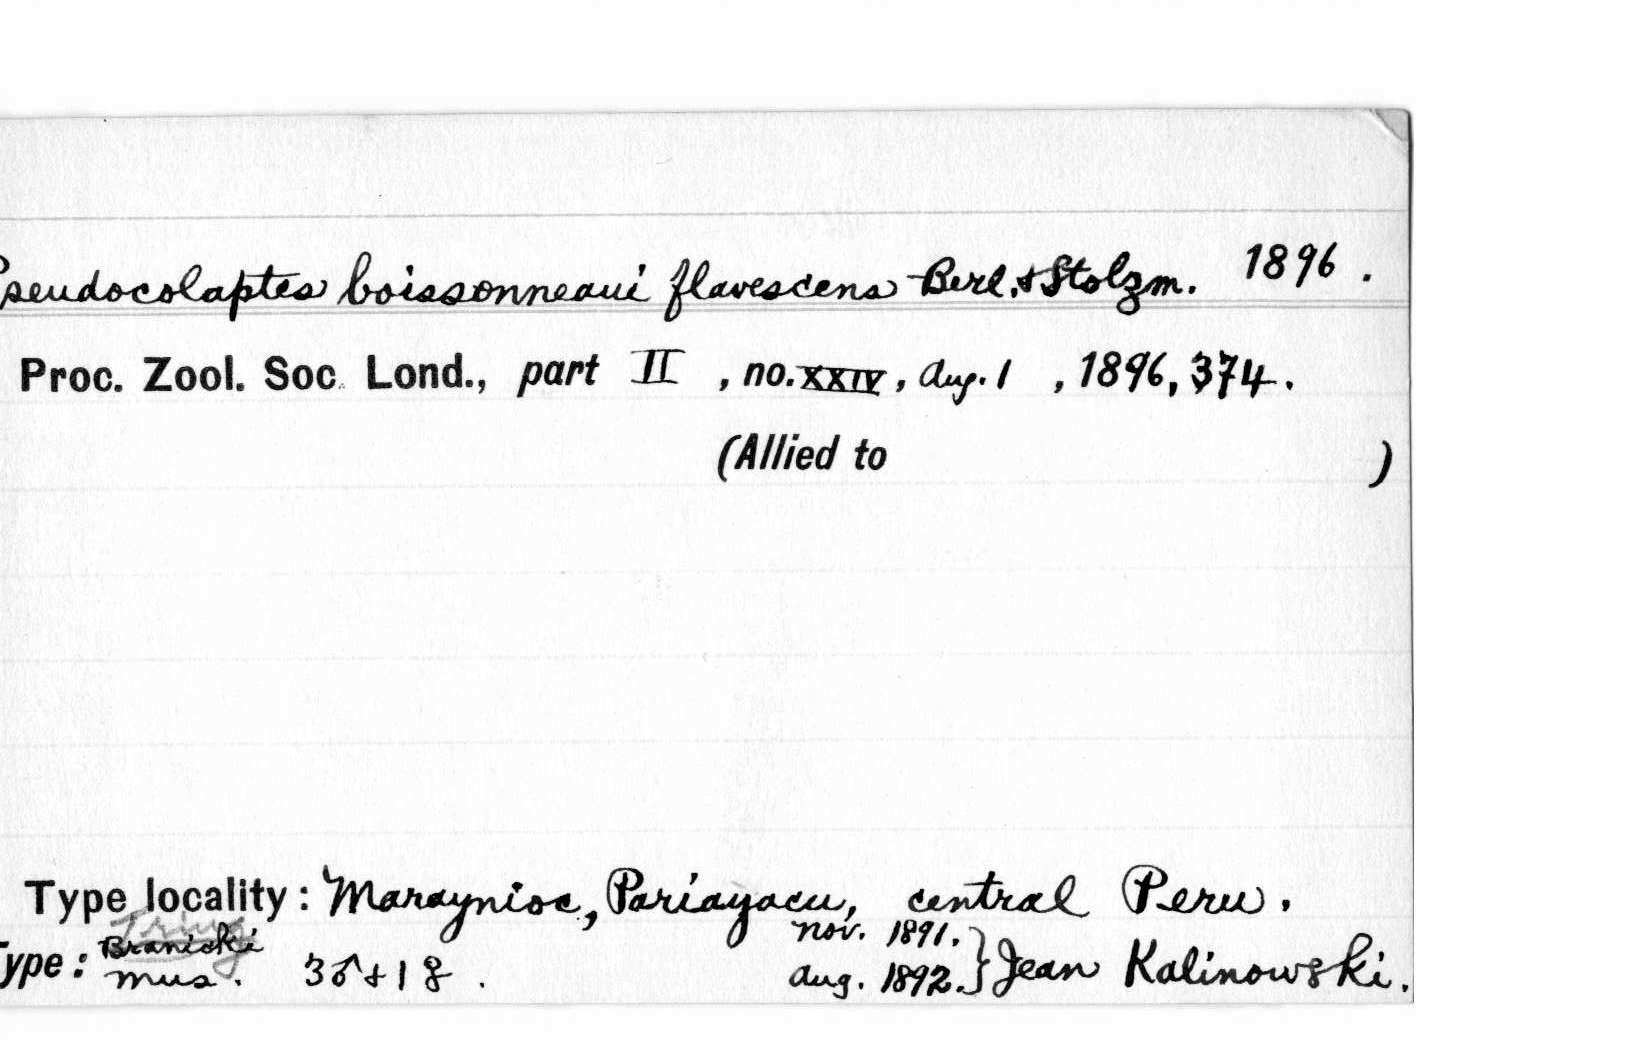 Pseudocolaptes boissonneaui flavescens Berl. & Stolzm. 1896.
Proc. Zool. Soc. Lond., part II, no. XXIV, Aug. 1, 1896, 374.
(Allied to )
Type locality: Maraynioc, Pariayacu, central Peru.
Tring
Type: Branicki mus. 3♂ + 1♀.
Nov. 1891.
Aug. 1892. } Jean Kalinowski.